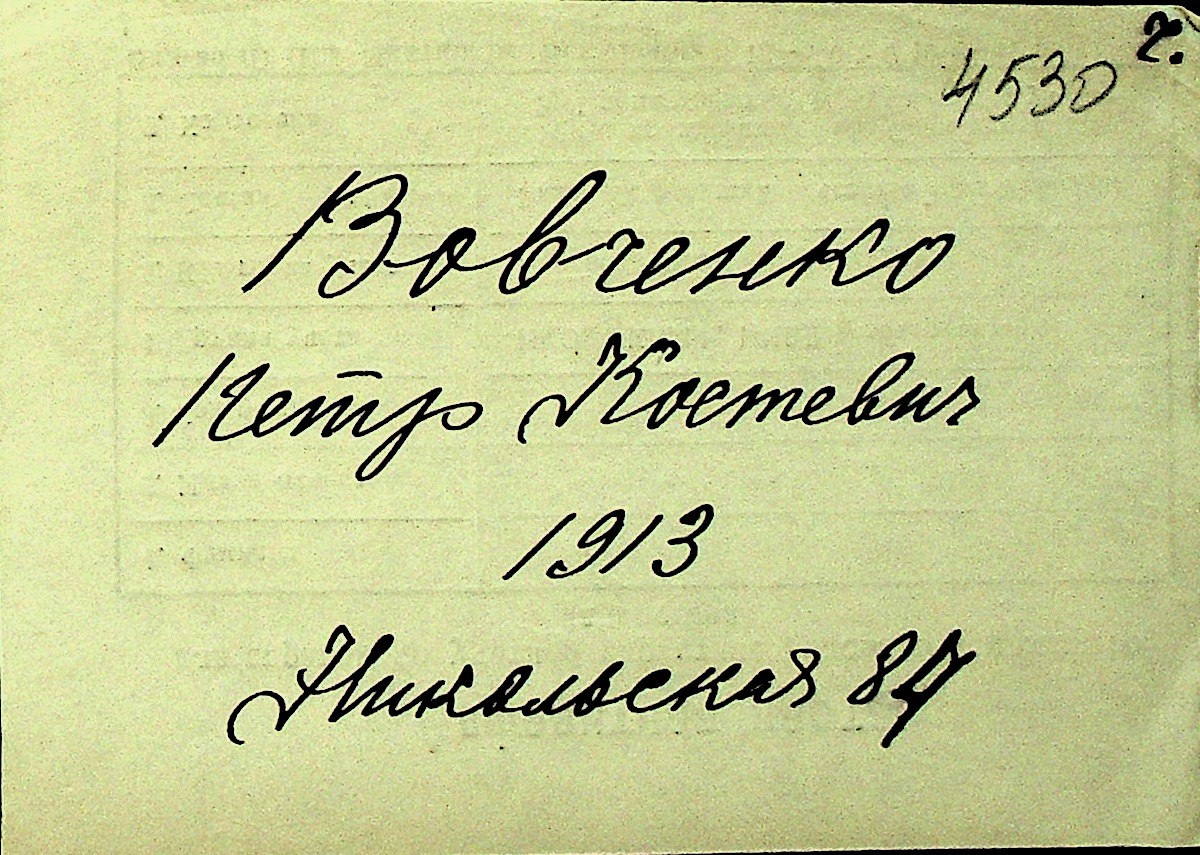 ч.
4530
Вовченко
Петр Костевич
1913
Никольская 87